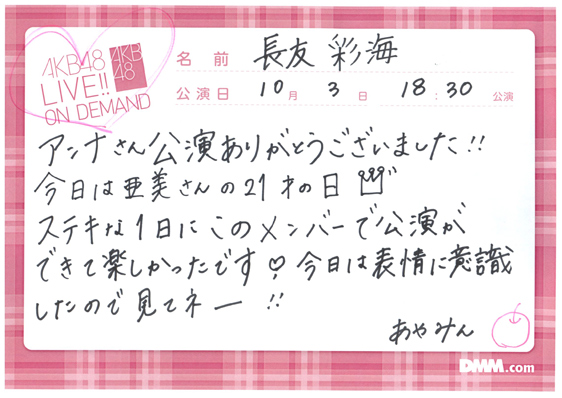 AKB48
LIVE!!
ON DEMAND
AKB
48
名前 長友 彩海
公演日 10月 3日 18:30 公演
アンナさん公演ありがとうございました!!
今日は亜美さんの21才の日
ステキな1日にこのメンバーで公演が
できて楽しかったです♡今日は表情に意識
したので見てネー !!
あやみん
DMM.com